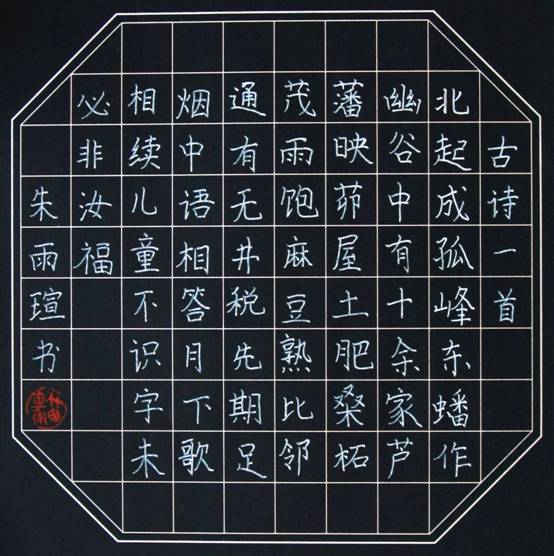 古诗一首
北起成孤峰东蟠作
幽谷中有十余家芦
藩映茆屋土肥桑柘
茂雨饱麻豆熟比邻
通有无井税先期足
烟中语相答月下歌
相续儿童不识字未
必非汝福
朱雨瑄书